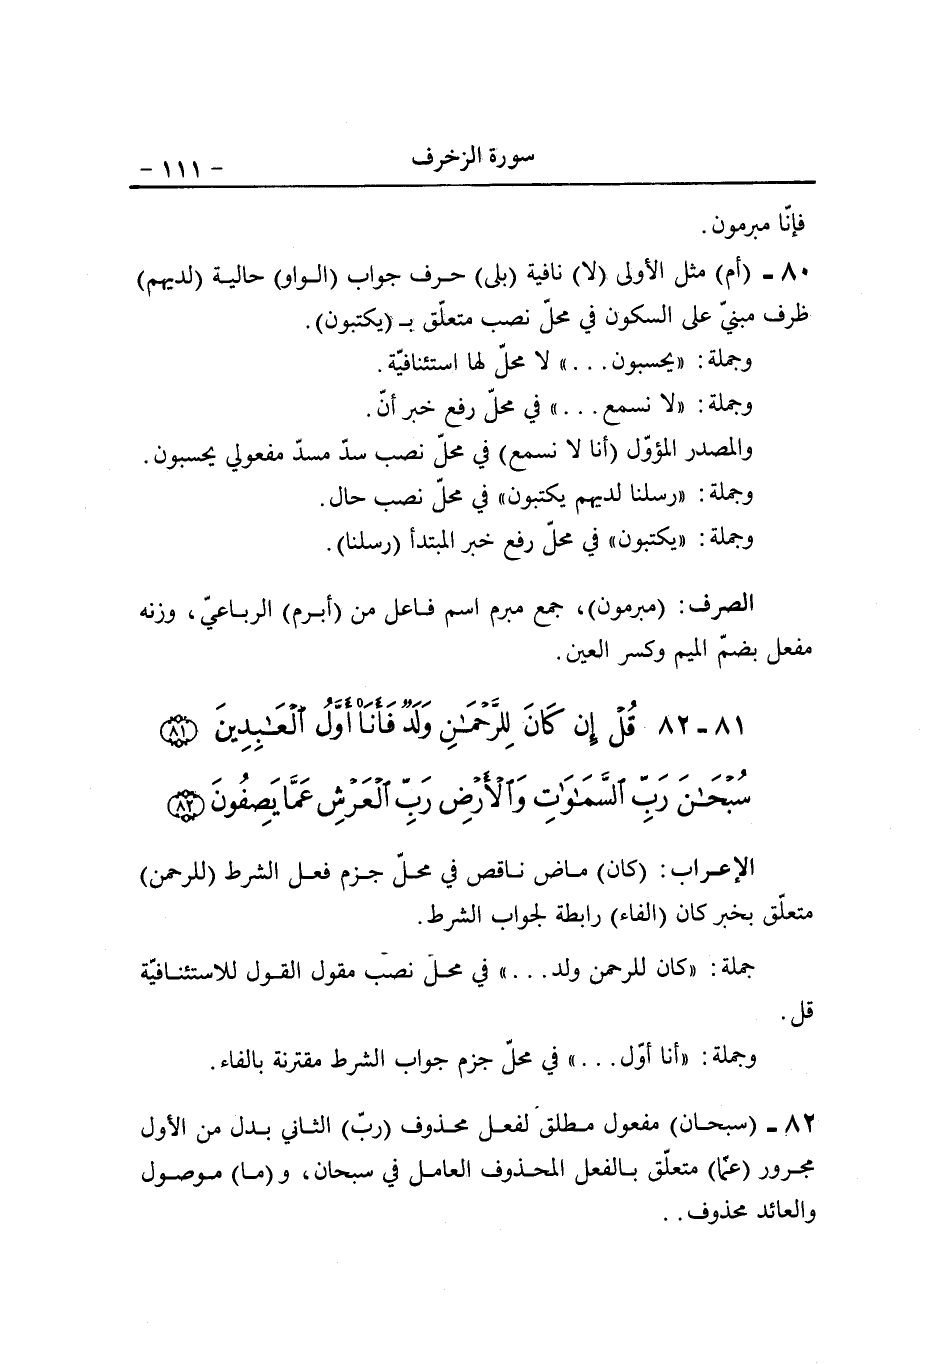 سورة الزخرف
- ١١١ -
فإنّا مبرمون.
٨٠ ـ (أم) مثل الأولى (لا) نافية (بلى) حرف جواب (الواو) حالية (لديهم)
ظرف مبنيّ على السكون في محلّ نصب متعلّق بـ (يكتبون).
وجملة: «يحسبون...» لا محلّ لها استئنافيّة.
وجملة: «لا نسمع...» في محلّ رفع خبر أنّ.
والمصدر المؤوّل (أنا لا نسمع) في محلّ نصب سدّ مسدّ مفعولي يحسبون.
وجملة: «رسلنا لديهم يكتبون» في محلّ نصب حال.
وجملة: «يكتبون» في محلّ رفع خبر المبتدأ (رسلنا).
الصرف: (مبرمون)، جمع مبرم اسم فاعل من (أبرم) الرباعيّ، وزنه
مفعل بضمّ الميم وكسر العين.
٨١ ـ ٨٢ قُلْ إِن كَانَ لِلرَّحْمَـٰنِ وَلَدٌ فَأَنَا۠ أَوَّلُ ٱلْعَـٰبِدِينَ ﴿٨١﴾
سُبْحَـٰنَ رَبِّ ٱلسَّمَـٰوَٰتِ وَٱلْأَرْضِ رَبِّ ٱلْعَرْشِ عَمَّا يَصِفُونَ ﴿٨٢﴾
الإعراب: (كان) ماض ناقص في محلّ جزم فعل الشرط (للرحمن)
متعلّق بخبر كان (الفاء) رابطة لجواب الشرط.
جملة: «كان للرحمن ولد...» في محلّ نصب مقول القول للاستئنافيّة
قل.
وجملة: «أنا أوّل...» في محلّ جزم جواب الشرط مقترنة بالفاء.
٨٢ ـ (سبحان) مفعول مطلق لفعل محذوف (ربّ) الثاني بدل من الأول
مجرور (عمّا) متعلّق بالفعل المحذوف العامل في سبحان، و (ما) موصول
والعائد محذوف..